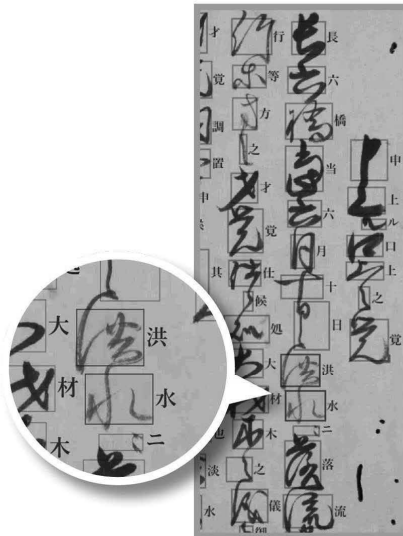 申上ル口上之覚
長六橋当六月十日洪水ニ落流
行等方之才覚仕候処大材木之儀
才覚調置申候其
淡水
洪水ニ
大材木